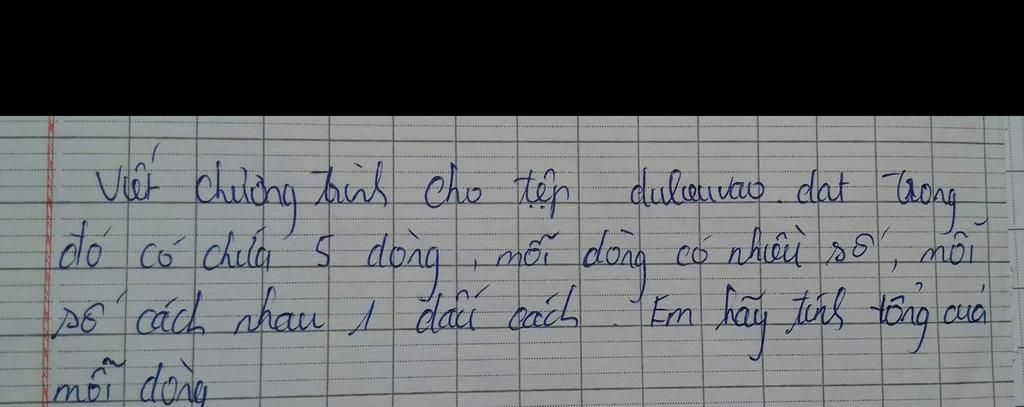 Viết chương trình cho tệp dulieuvao.dat trong
đó có chứa 5 dòng, mỗi dòng có nhiều số, mỗi
số cách nhau 1 dấu cách. Em hãy tính tổng của
mỗi dòng